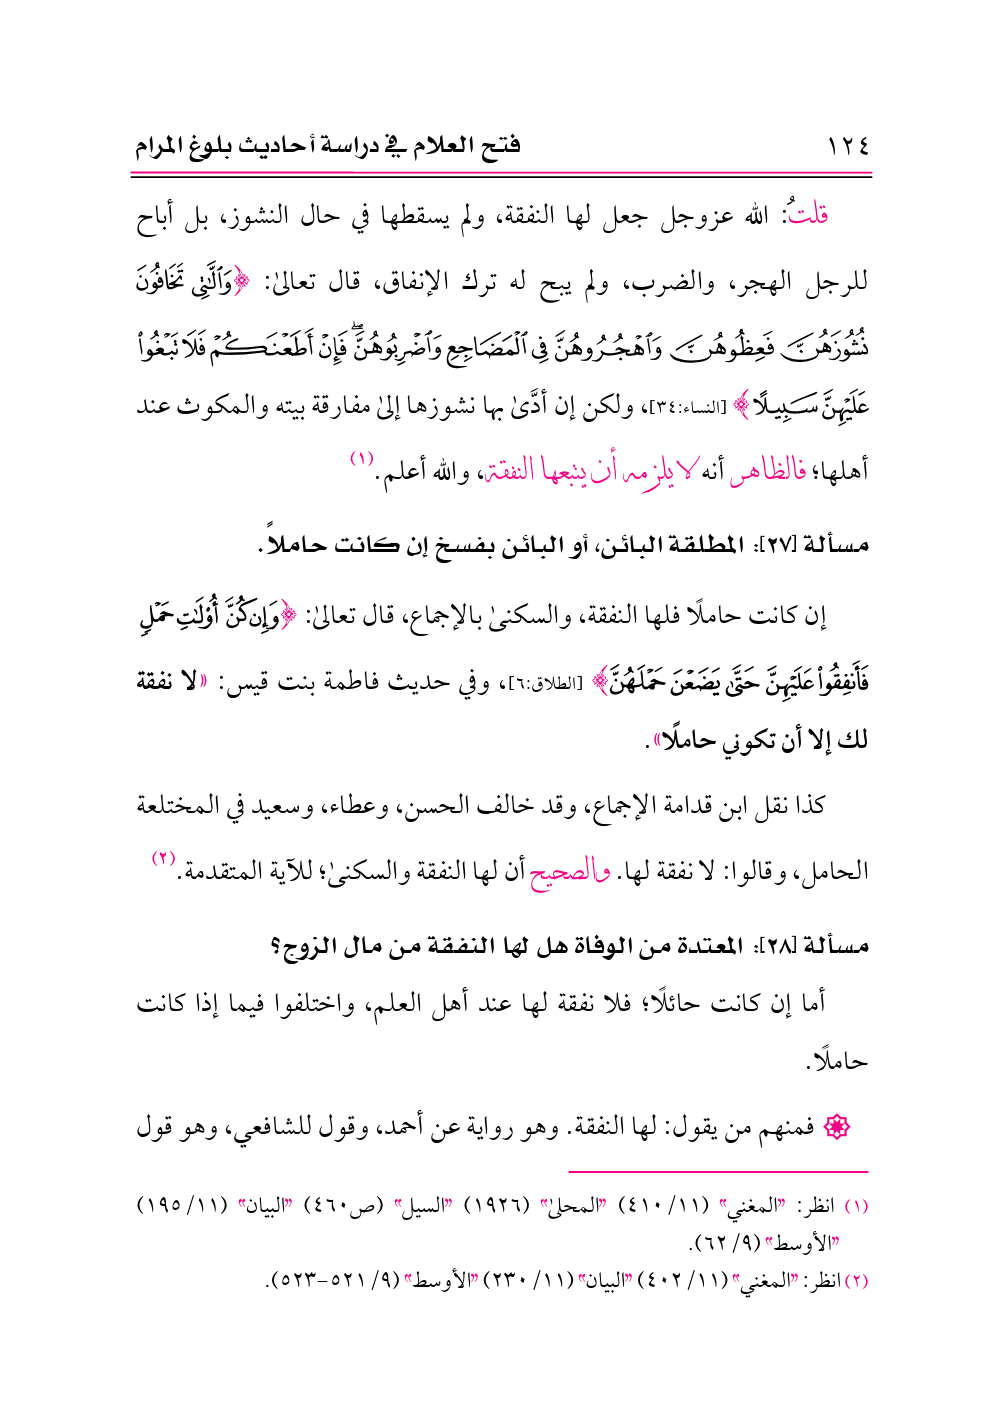 ١٢٤ فتح العلام في دراسة أحاديث بلوغ المرام
قلتُ: الله عزوجل جعل لها النفقة، ولم يسقطها في حال النشوز، بل أباح
للرجل الهجر، والضرب، ولم يبح له ترك الإنفاق، قال تعالىٰ: ﴿وَٱلَّٰتِي تَخَافُونَ
نُشُوزَهُنَّ فَعِظُوهُنَّ وَٱهْجُرُوهُنَّ فِي ٱلْمَضَاجِعِ وَٱضْرِبُوهُنَّۖ فَإِنْ أَطَعْنَكُمْ فَلَا تَبْغُواْ
عَلَيْهِنَّ سَبِيلًا﴾ [النساء:٣٤]، ولكن إن أدَّىٰ بها نشوزها إلىٰ مفارقة بيته والمكوث عند
أهلها؛ فالظاهر أنه لا يلزمه أن يتبعها النفقة، والله أعلم.(١)
مسألة [٢٧]: المطلقة البائن، أو البائن بفسخ إن كانت حاملاً.
إن كانت حاملًا فلها النفقة، والسكنىٰ بالإجماع، قال تعالىٰ: ﴿وَإِن كُنَّ أُوْلَٰتِ حَمْلٍ
فَأَنفِقُواْ عَلَيْهِنَّ حَتَّىٰ يَضَعْنَ حَمْلَهُنَّ﴾ [الطلاق:٦]، وفي حديث فاطمة بنت قيس: «لا نفقة
لك إلا أن تكوني حاملًا».
كذا نقل ابن قدامة الإجماع، وقد خالف الحسن، وعطاء، وسعيد في المختلعة
الحامل، وقالوا: لا نفقة لها. والصحيح أن لها النفقة والسكنىٰ؛ للآية المتقدمة.(٢)
مسألة [٢٨]: المعتدة من الوفاة هل لها النفقة من مال الزوج؟
أما إن كانت حائلًا؛ فلا نفقة لها عند أهل العلم، واختلفوا فيما إذا كانت
حاملًا.
۞ فمنهم من يقول: لها النفقة. وهو رواية عن أحمد، وقول للشافعي، وهو قول
(١) انظر: "المغني" (١١/ ٤١٠) "المحلىٰ" (١٩٢٦) "السيل" (ص٤٦٠) "البيان" (١١/ ١٩٥)
"الأوسط" (٩/ ٦٢).
(٢) انظر: "المغني" (١١/ ٤٠٢) "البيان" (١١/ ٢٣٠) "الأوسط" (٩/ ٥٢١-٥٢٣).